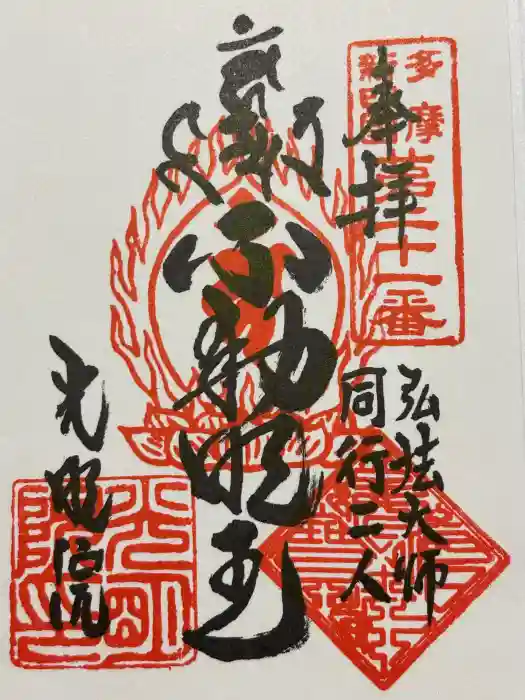 多摩
新四国
第三十一番
奉拝
弘法大师
同行二人
不動明王
光明院
光明院印